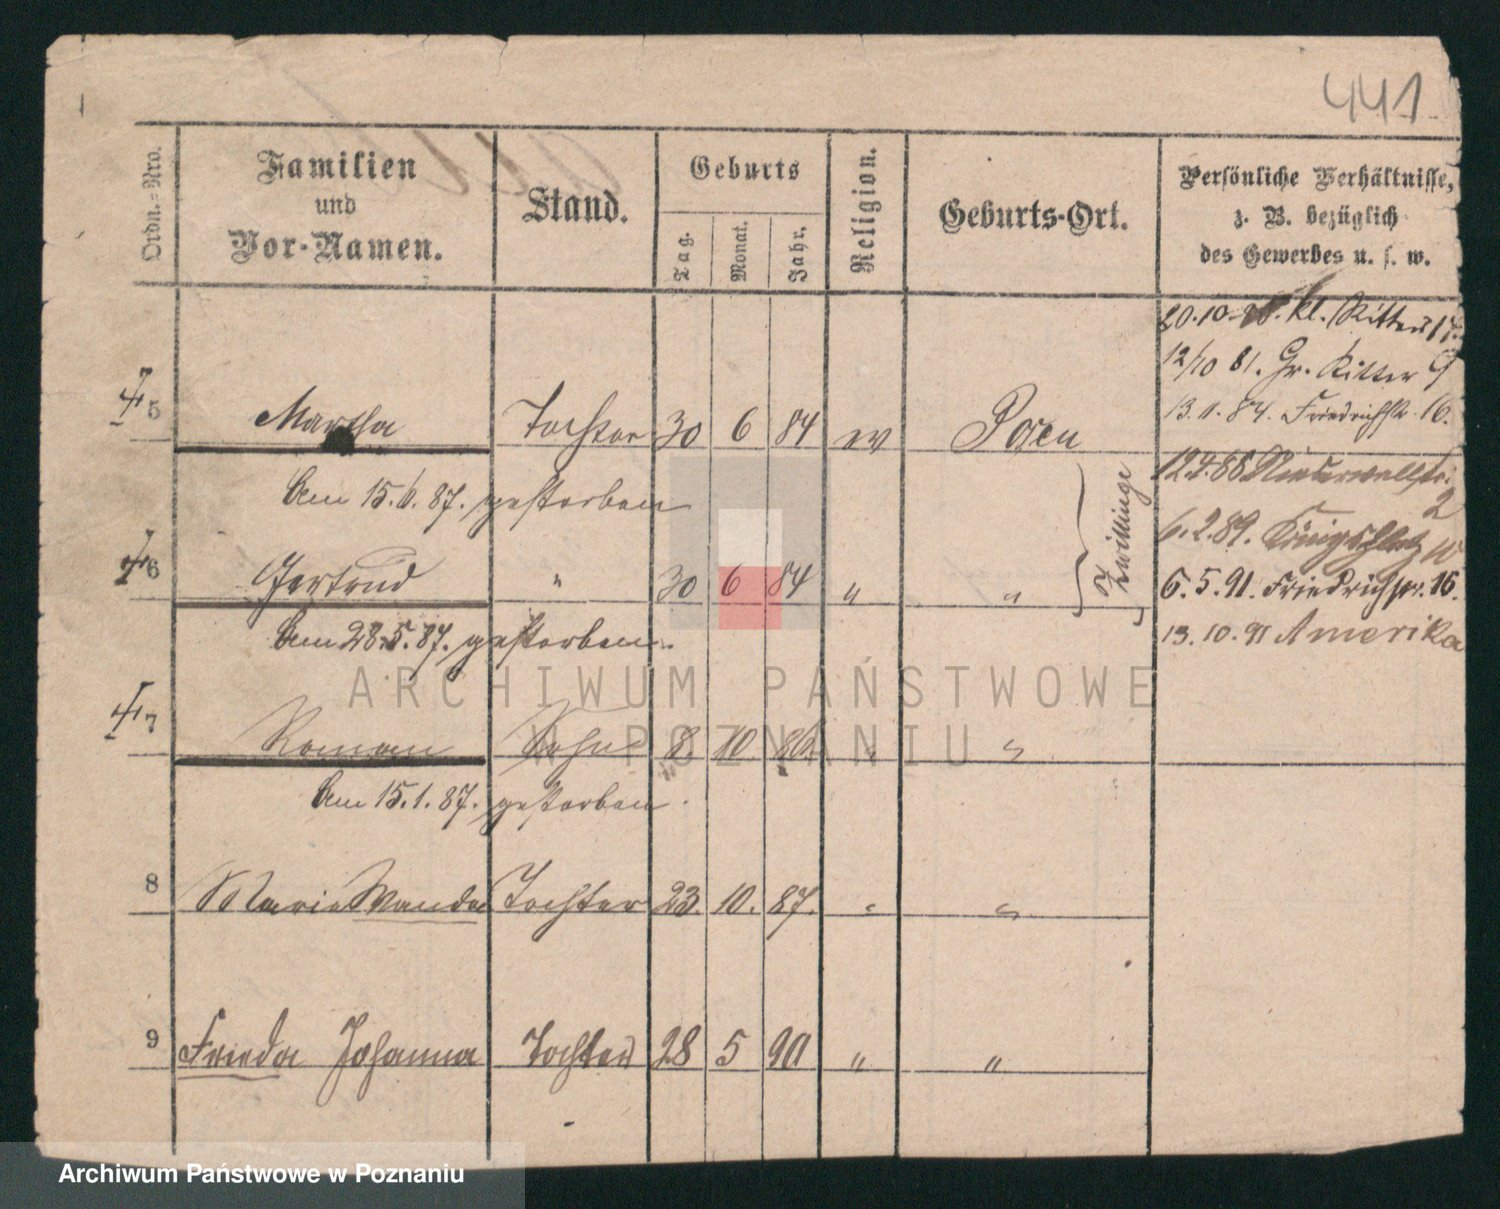 441
Ordn.=Nro.
Familien
und
Vor-Namen.
Stand.
Geburts
Tag.
Monat.
Jahr.
Religion.
Geburts-Ort.
Persönliche Verhältnisse,
z. B. bezüglich
des Gewerbes u. s. w.
20.10. kl. Ritterst 17.
12/10 81. Gr. Ritter 9
13.11.84. Friedrichstr. 16.
5 Martha Tochter 30 6 84 ev Posen
12.2.88 Niederwallstr.
2
Am 15.6.87. gestorben
6.2.89. Königsplatz 10
Zwillinge
6 Gertrud " 30 6 84 " "
6.5.91. Friedrichstr. 16.
Am 28.5.87. gestorben.
13.10.91 Amerika
7 Roman Sohn 8. 10. 86. " "
Am 15.1.87. gestorben.
8 Marie Wanda Tochter 23. 10. 87. " "
9 Frieda Johanna Tochter 28 5 90 " "
ARCHIWUM PAŃSTWOWE
W POZNANIU
Archiwum Państwowe w Poznaniu